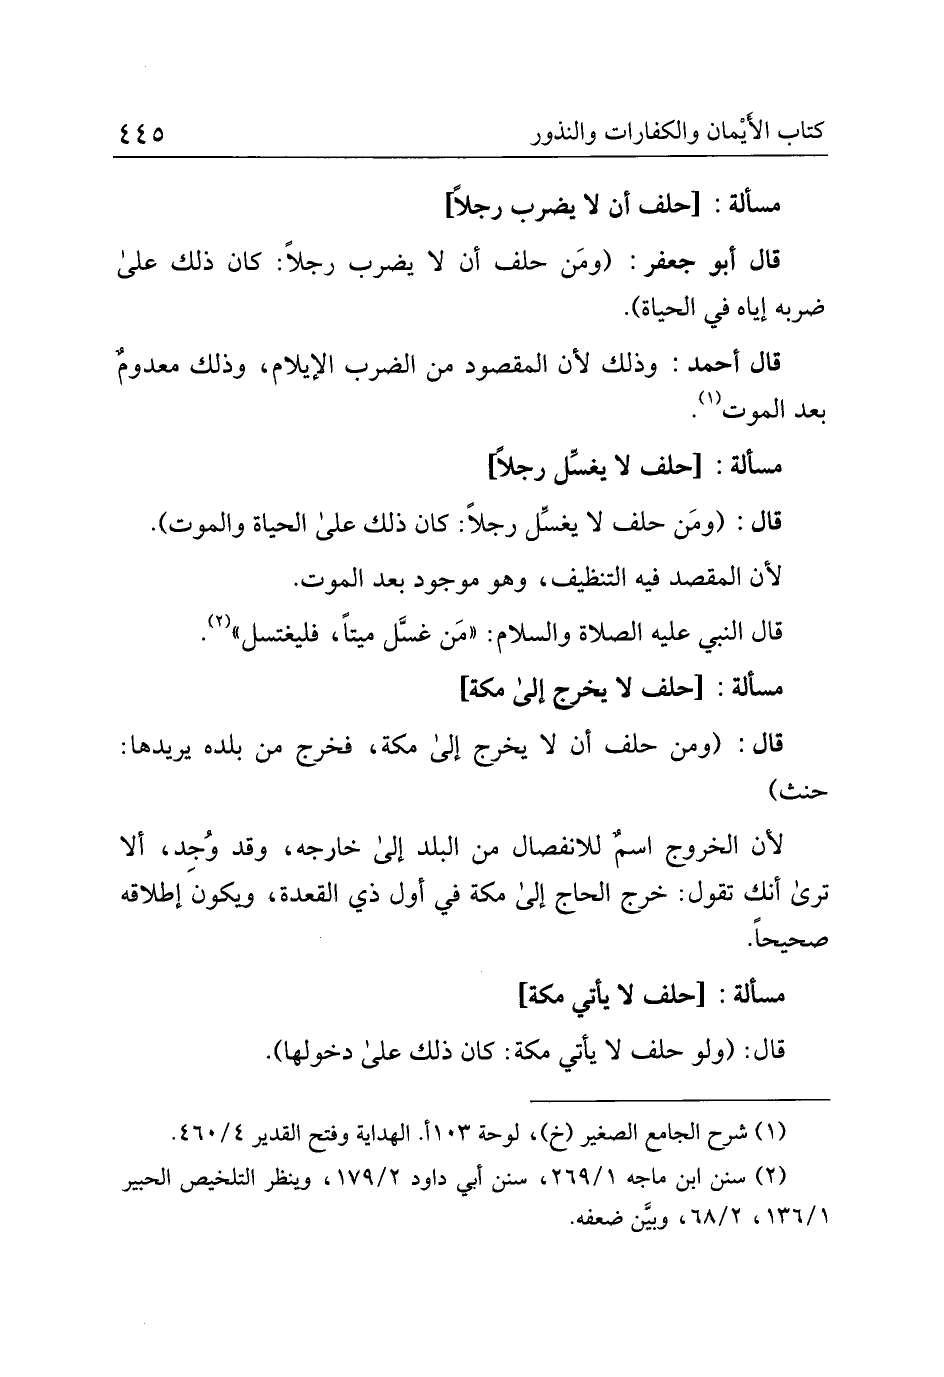 كتاب الأَيْمان والكفارات والنذور ٤٤٥
مسألة : [حلف أن لا يضرب رجلاً]
قال أبو جعفر : (ومَن حلف أن لا يضرب رجلاً: كان ذلك علىٰ
ضربه إياه في الحياة).
قال أحمد : وذلك لأن المقصود من الضرب الإيلام، وذلك معدومٌ
بعد الموت(١).
مسألة : [حلف لا يغسِّل رجلاً]
قال : (ومَن حلف لا يغسِّل رجلاً: كان ذلك علىٰ الحياة والموت).
لأن المقصد فيه التنظيف، وهو موجود بعد الموت.
قال النبي عليه الصلاة والسلام: «مَن غسَّل ميتاً، فليغتسل»(٢).
مسألة : [حلف لا يخرج إلىٰ مكة]
قال : (ومن حلف أن لا يخرج إلىٰ مكة، فخرج من بلده يريدها:
حنث)
لأن الخروج اسمٌ للانفصال من البلد إلىٰ خارجه، وقد وُجِد، ألا
ترىٰ أنك تقول: خرج الحاج إلىٰ مكة في أول ذي القعدة، ويكون إطلاقه
صحيحاً.
مسألة : [حلف لا يأتي مكة]
قال: (ولو حلف لا يأتي مكة: كان ذلك علىٰ دخولها).
(١) شرح الجامع الصغير (خ)، لوحة ١٠٣أ. الهداية وفتح القدير ٤٦٠/٤.
(٢) سنن ابن ماجه ٢٦٩/١، سنن أبي داود ١٧٩/٢، وينظر التلخيص الحبير
١٣٦/١، ٦٨/٢، وبيَّن ضعفه.